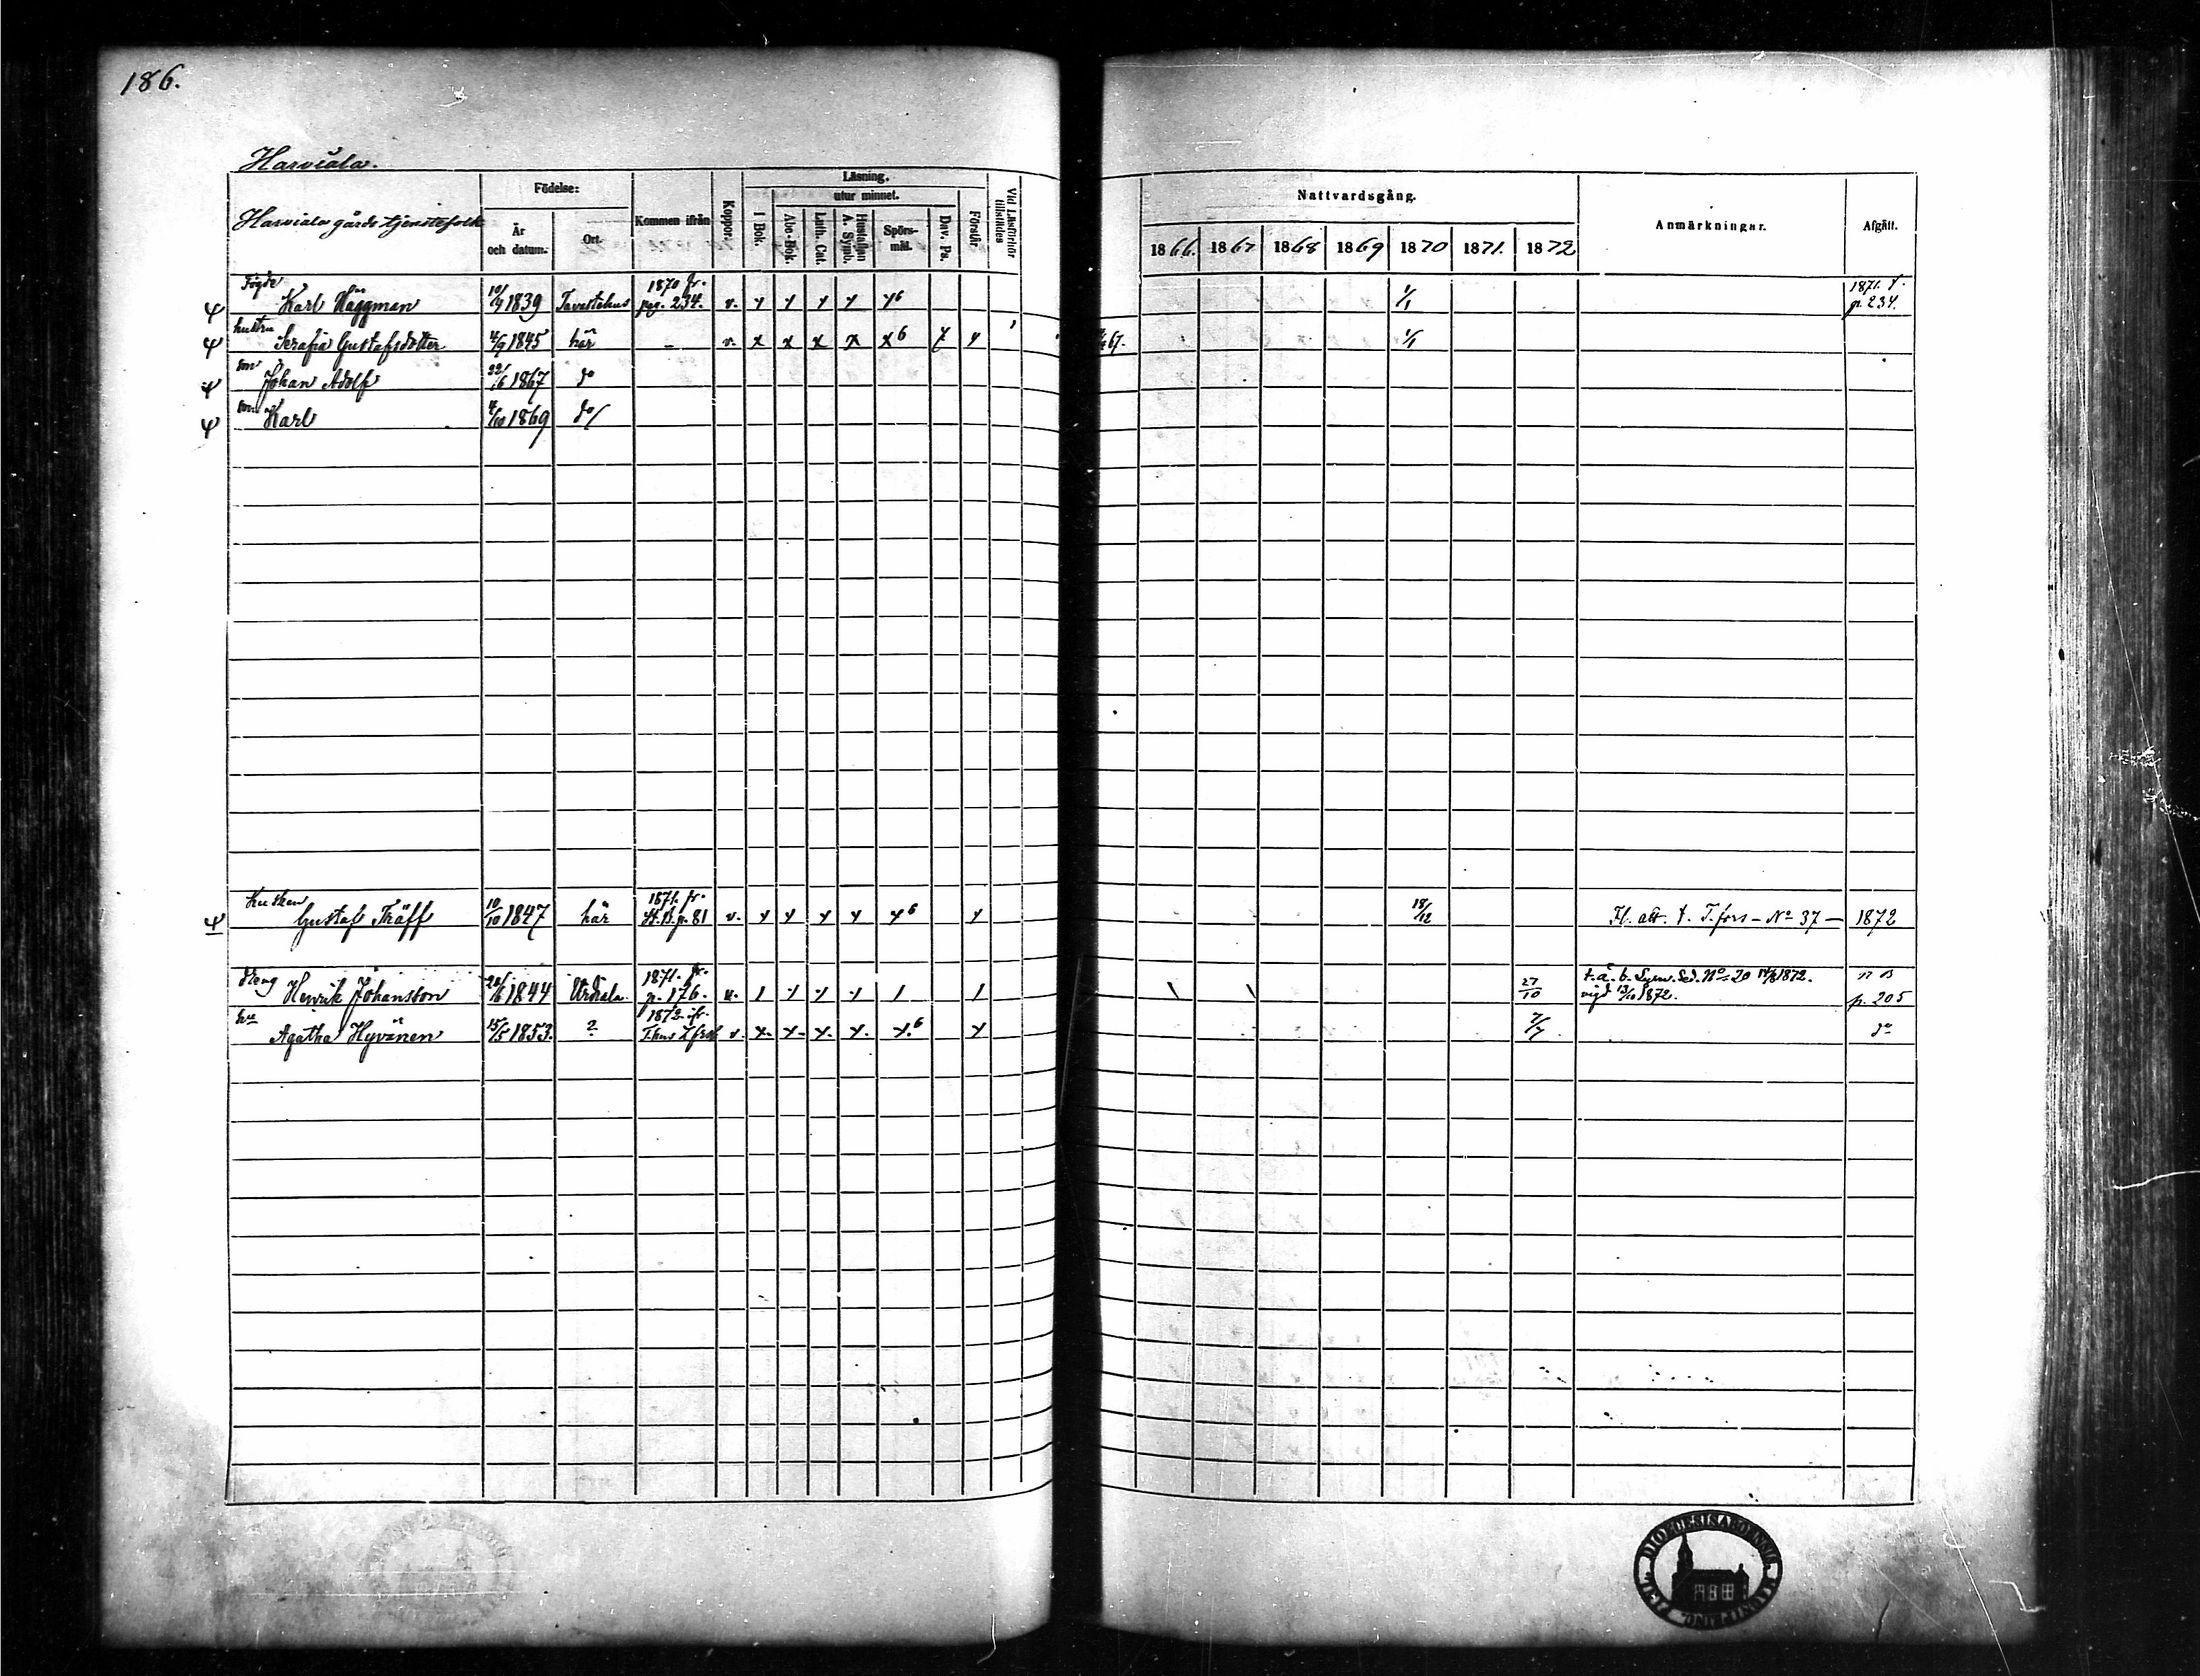 186.
Harviala.
Harviala gårds tjenstefolk
Födelse:
År och datum.
Ort.
Kommen ifrån
Koppor.
Läsning.
I Bok.
utur minnet.
Abc-Bok.
Luth. Cat.
Hustaflan A. Symb.
Spörsmål.
Dav. Ps.
Förstår
Vid Läsförhör tillstädes
Nattvardsgång.
1866. 1867 1868 1869 1870 1871. 1872
Anmärkningar.
Afgått.
Fogde Karl Häggman 10/4 1839 Tavastehus 1870 fr. pag. 234. v. 1/1 1871. t. p. 234.
hustru Serafia Gustafsdotter 1845 här - v. x x x x x6 67. 1/1
son Johan Adolf 22/6 1867 do
son Karl 1869 do
Kusken Gustaf Träff 10/10 1847 här 1871. fr. p. 81 v. 18/12 Fl. att. t. T.fors - No 37 - 1872
dräng Henrik Johansson 1844 Urdiala. 1871. fr. p. 176. v. 27/10 t. ä. b. Lysn. Sed. No 20 1872. vigd 13/10 1872. p. 205
hu Agatha Hyvönen 15/5 1853. ? 1872 fr. v. 7/7 do